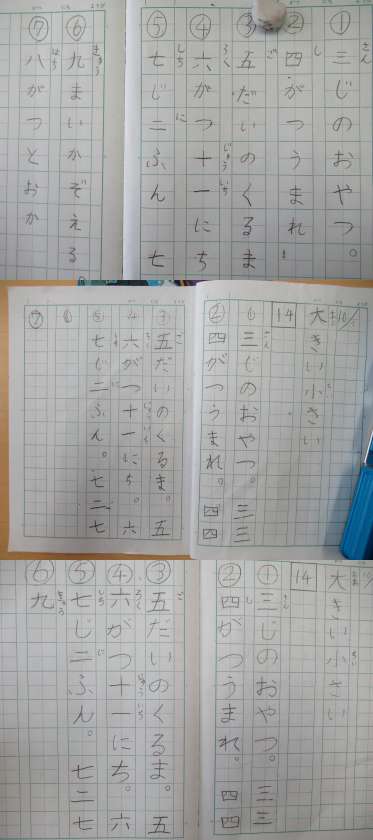 ① 三じのおやつ。
さん
② 四がつうまれ
し
③ 五だいのくるま
ご
④ 六がつ十一にち
ろく じゅう いち
⑤ 七じ二ふん 七
しち に
⑥ 九まいかぞえる
きゅう
⑦ 八がつとおか
はち
大きい小さい
14
① 三じのおやつ。 三三
さん
② 四がつうまれ。 四四
③ 五だいのくるま。 五
ご
④ 六がつ十一にち。 六
⑤ 七じ二ふん。 七二七
⑥
⑦
大きい小さい
14
① 三じのおやつ。 三三
さん
② 四がつうまれ。 四四
し
③ 五だいのくるま。 五
ご
④ 六がつ十一にち。 六
ろく じゅう いち
⑤ 七じ二ふん。 七二七
しち
⑥ 九
きゅう